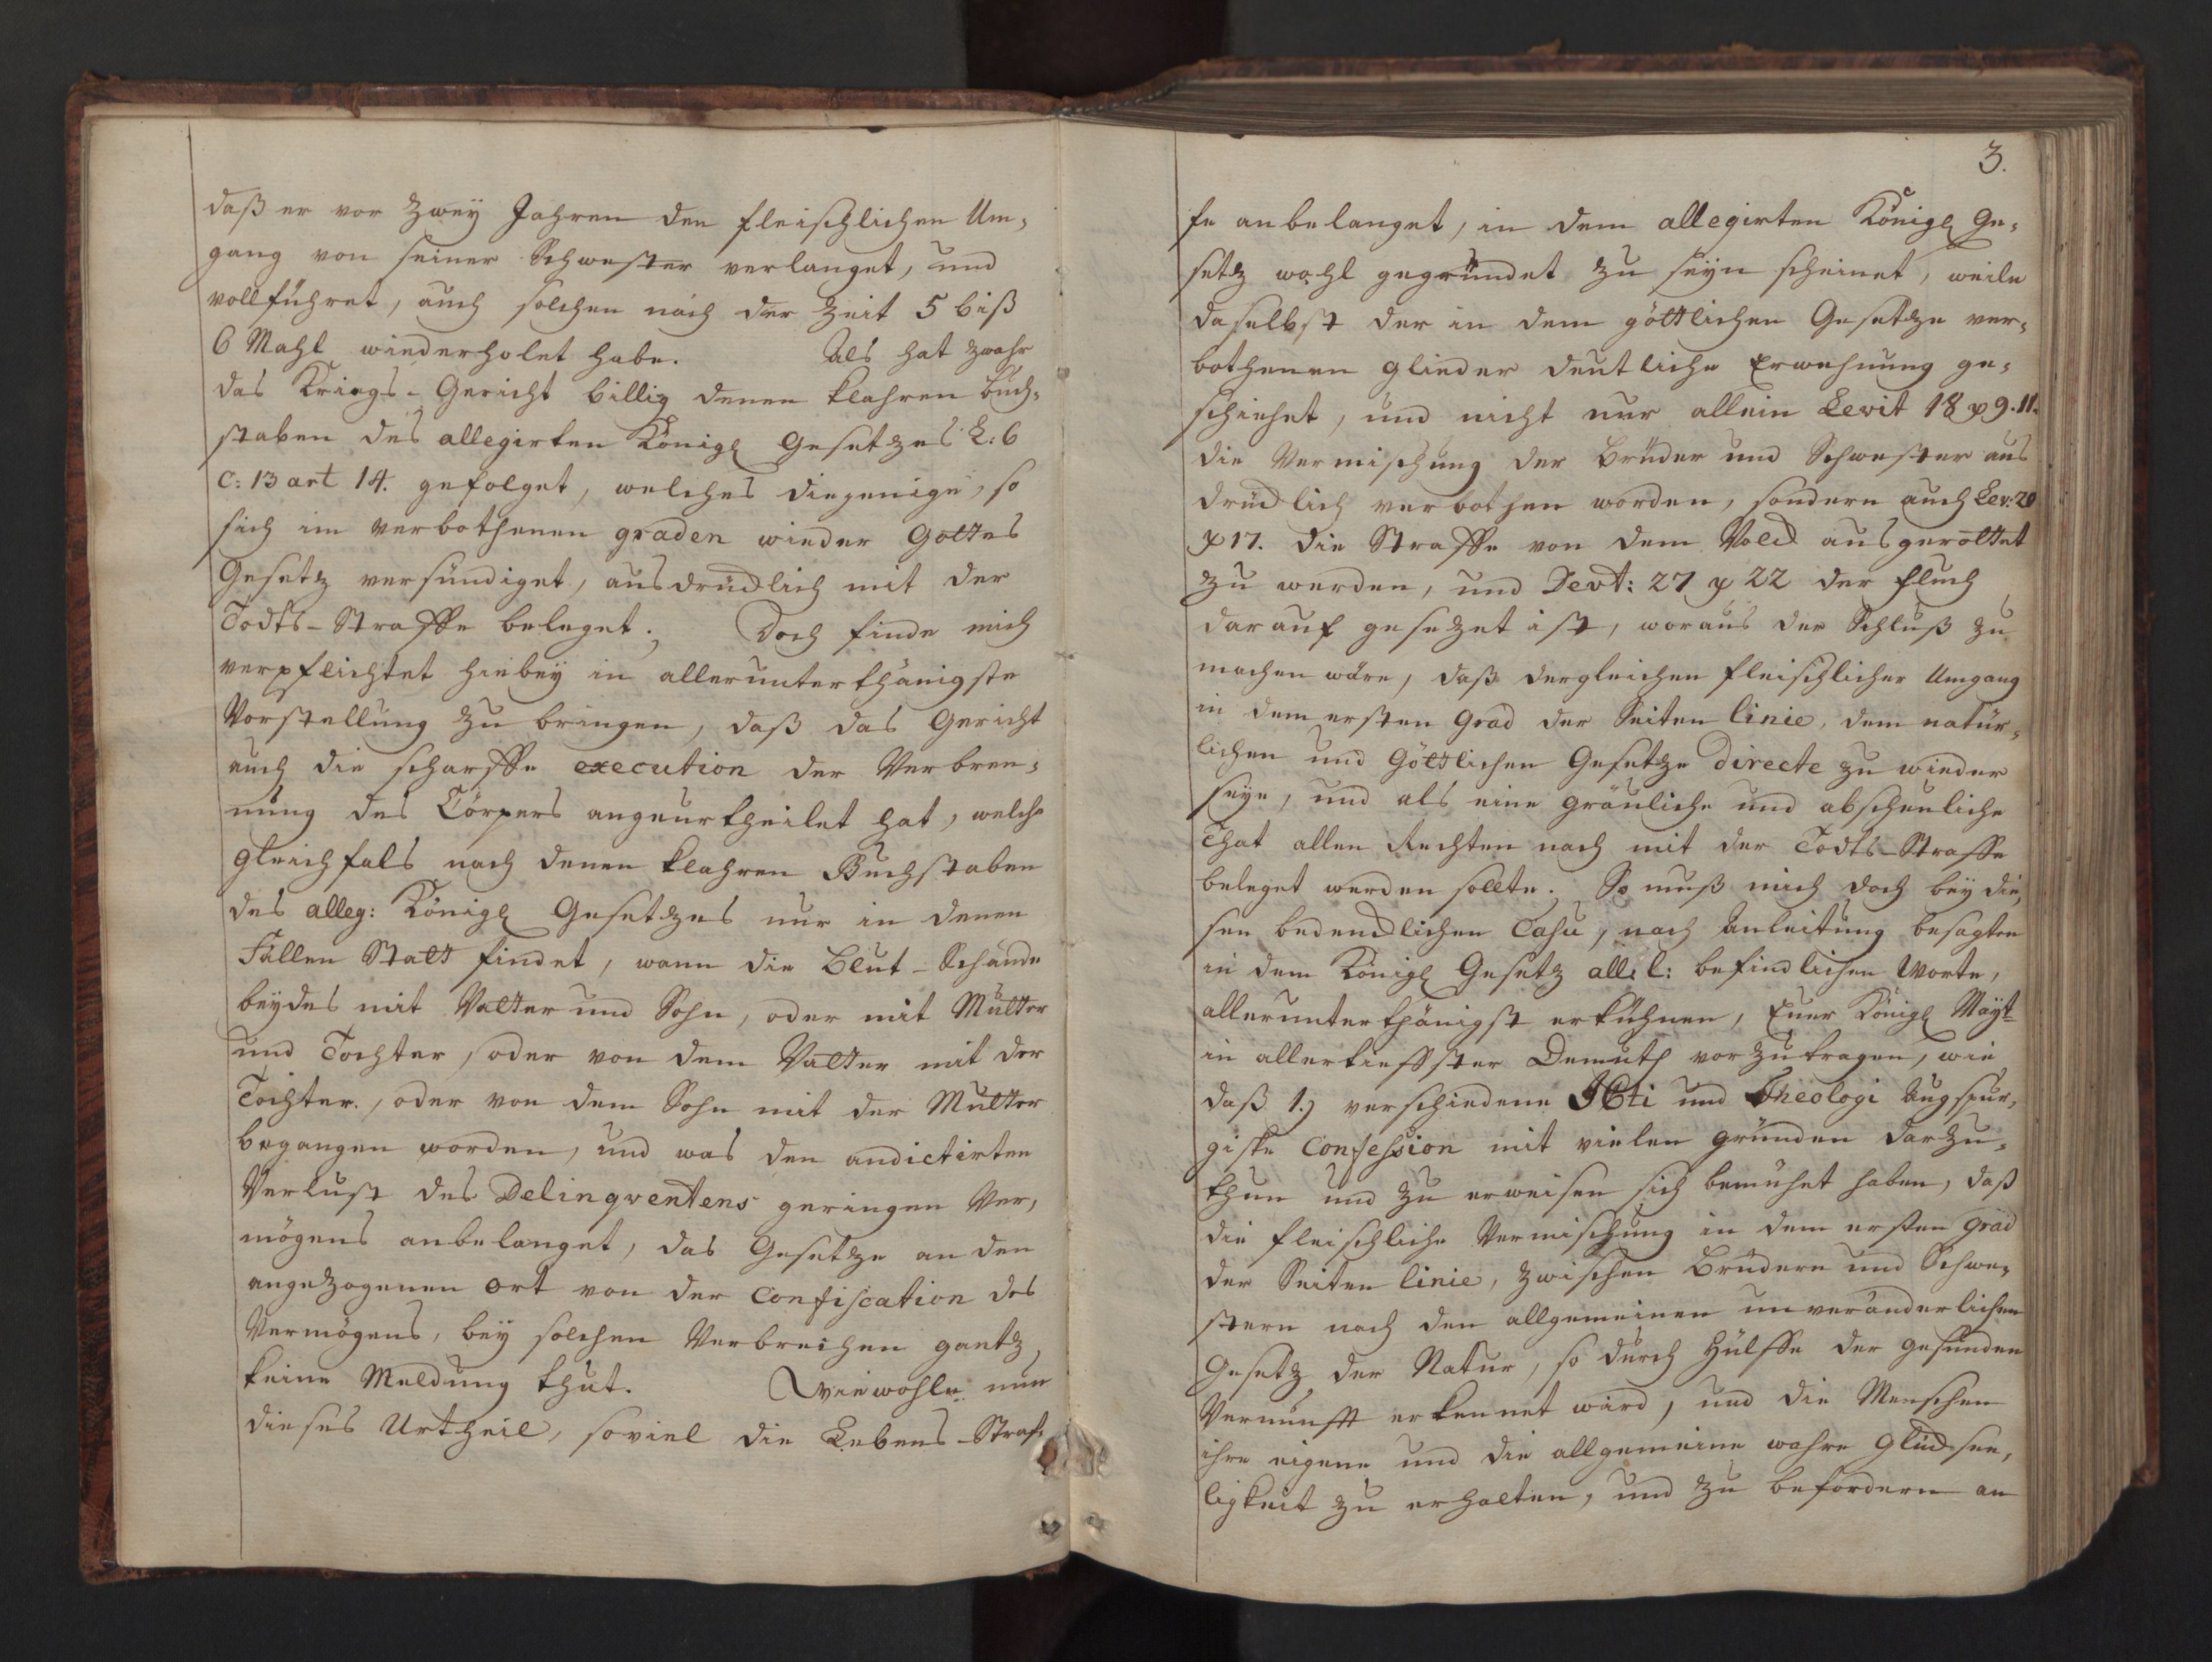 daß er vor zwey Jahren den fleischlichen Um¬
gang von seiner Schwester verlanget, und
vollführet, auch solchen nach der Zeit 5 biß
6 Mahl wiederholet habe. Als hat zwahr
das Kriegs-Gericht billig denen klahren Buch¬
staben des allegirten Königl Gesetzes L: 6
C: 13 art 14. gefolget, welches diejenige, so
sich im verbothenen graden wieder Gottes
Gesetz versündiget, ausdrücklich mit der
Todts-Straffe beleget. Doch finde mich
verpflichtet hiebey in allerunterthänigste
Vorstellung zu bringen, daß das Gericht
auch die scharffe execution der Verbren¬
nung des Cörpers angeurtheilet hat, welche
gleichfals nach denen klahren Buchstaben
des alleg: Königl Gesetzes nur in denen
Fällen Statt findet, wann die Blut-Schande
beydes mit Vatter und Sohn, oder mit Mutter
und Tochter, oder von dem Vatter mit der
Tochter, oder von dem Sohn mit der Mutter
begangen worden, und was den andictirten
Verlust des Delinqventens geringen Ver¬
mögens anbelanget, das Gesetze an den
angezogenen Ort von der Confiscation des
Vermögens, bey solchen Verbrechen gantz
keine Meldung thut. Wiewohle nun
dieses Urtheil, soviel die Lebens-Straf¬
3.
fe anbelanget, in dem allegirten Königl Ge¬
setz wohl gegründet zu seyn scheinet, weile
daselbst der in dem göttlichen Gesetze ver¬
bothenen glieder deutliche Erwehnung ge¬
schiehet, und nicht nur allein Levit 18 v 9. 11.
die Vermischung der Brüder und Schwester aus
drücklich verbothen worden, sondern auch Lev: 20
v 17. die Straffe von dem Volck ausgerottet
zu werden, und Devt: 27 v 22 der Fluch
darauf gesezet ist, woraus der Schluß zu
machen wäre, daß dergleichen fleischlicher Umgang
in dem ersten Grad der Seiten linie, dem natür¬
lichen und Göttlichen Gesetze directe zu wieder
seye, und als eine gräuliche und abscheuliche
That allen Rechten nach mit der Todts-Straffe
beleget werden sollte. So muß mich doch bey die¬
sen bedencklichen Casu, nach Anleitung besagten
in dem Königl Gesetz all: l: befindlichen Worte,
allerunterthänigst erkühnen, Euer Königl Mayt
in allertieffster Demuth vorzutragen, wie
daß 1.) verschiedene JCti und Theologi Augspur¬
giske Confession mit vielen gründen darzu¬
thun und zu erweisen sich bemühet haben, daß
die fleischliche Vermischung in dem ersten Grad
der Seiten linie, zwischen Brüdern und Schwe¬
stern nach den allgemeinen unveränderlichen
Gesetz der Natur, so durch Hülffe der gesunden
Vernunfft erkennet wird, und die Menschen
ihre eigene und die allgemeine wahre Glücksee¬
ligkeit zu erhalten, und zu befordern an